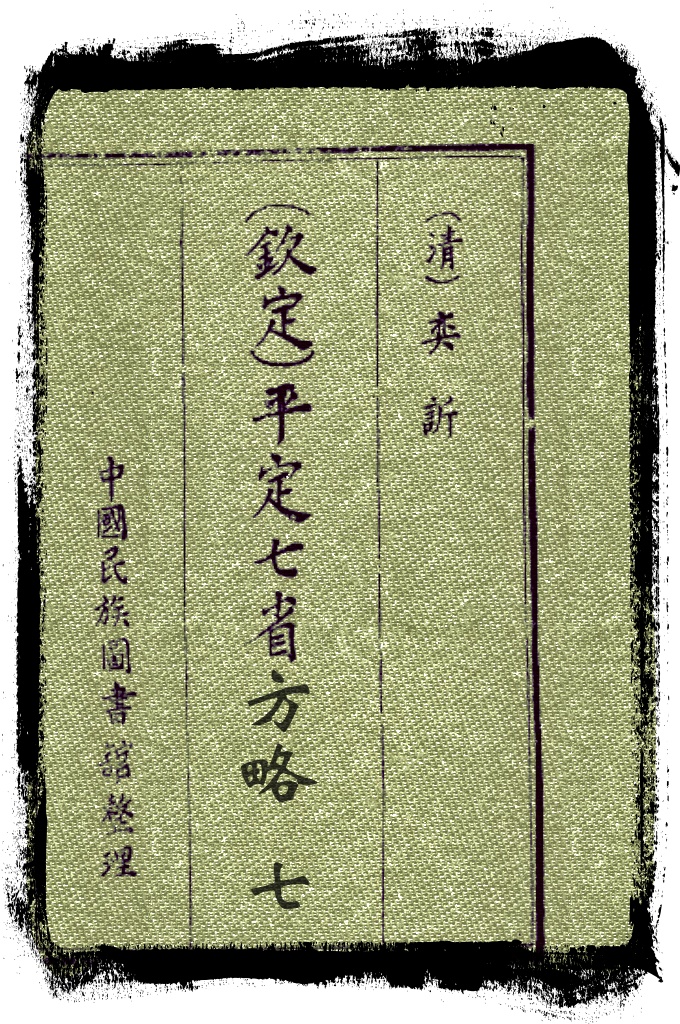 (清)奕訢
(欽定)平定七省方略 七
中國民族圖書館整理